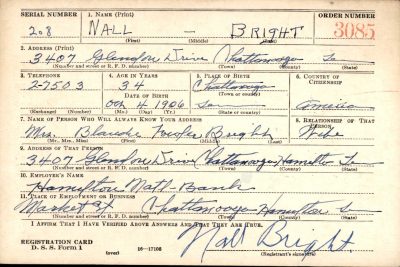 SERIAL NUMBER 1. NAME (Print) ORDER NUMBER
208 NALL — BRIGHT 3085
(First) (Middle) (Last)
2. ADDRESS (Print)
3407 Glendon Drive Chattanooga
(Number and street or R. F. D. number) (Town) (County) (State)
3. TELEPHONE 4. AGE IN YEARS 5. PLACE OF BIRTH 6. COUNTRY OF CITIZENSHIP
2-7503 34 Chattanooga
DATE OF BIRTH (Town or county)
Oct 4 1906 America
(Exchange) (Number) (Mo.) (Day) (Yr.) (State or country)
7. NAME OF PERSON WHO WILL ALWAYS KNOW YOUR ADDRESS 8. RELATIONSHIP OF THAT PERSON
Mrs. Blanche Fowler Bright Wife
(Mr., Mrs., Miss) (First) (Middle) (Last)
9. ADDRESS OF THAT PERSON
3407 Glendon Drive Chattanooga Hamilton
(Number and street or R. F. D. number) (Town) (County) (State)
10. EMPLOYER'S NAME
Hamilton Natl- Bank
11. PLACE OF EMPLOYMENT OR BUSINESS
Market St Chattanooga Hamilton
(Number and street or R. F. D. number) (Town) (County) (State)
I AFFIRM THAT I HAVE VERIFIED ABOVE ANSWERS AND THAT THEY ARE TRUE.
Nall Bright
REGISTRATION CARD
D. S. S. Form 1 (over) 16-17105 (Registrant's signature)